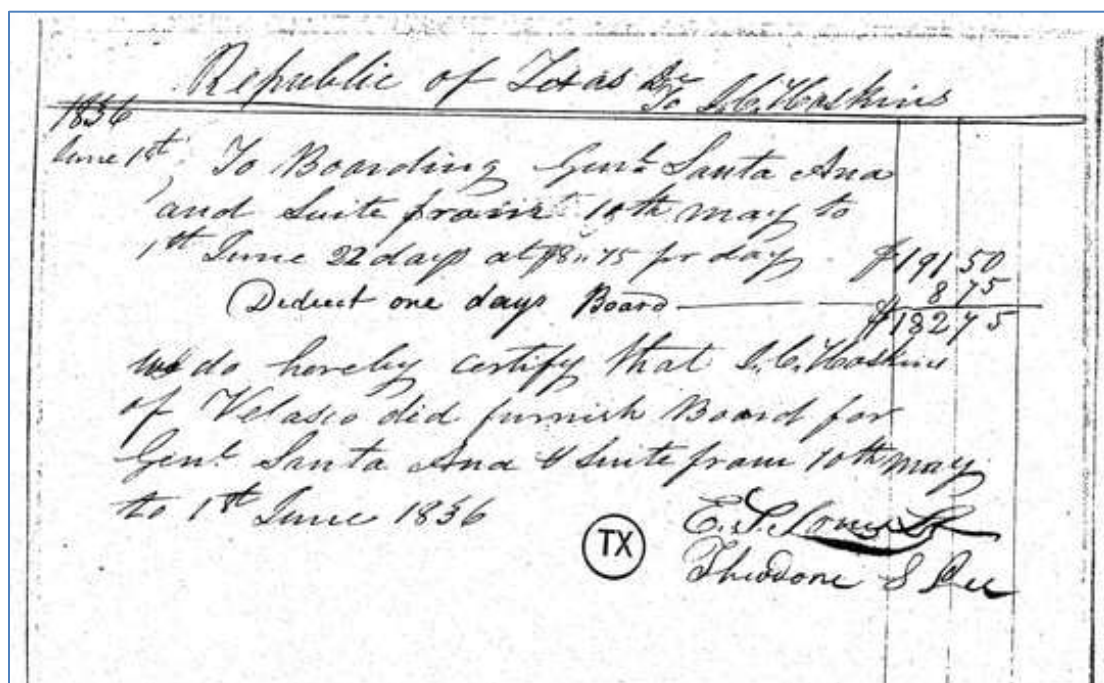 Republic of Texas Dr To I.C. Hoskins
1836
June 1st To Boarding Genl. Santa Ana
and Suite from 10th may to
1st June 22 days at $8.75 pr day $191 50
Deduct one days Board 8 75
$182 75
we do hereby certify that I.C. Hoskins
of Velasco did furnish Board for
Genl. Santa Ana & Suite from 10th may
to 1st June 1836
TX
Theodore S Lee